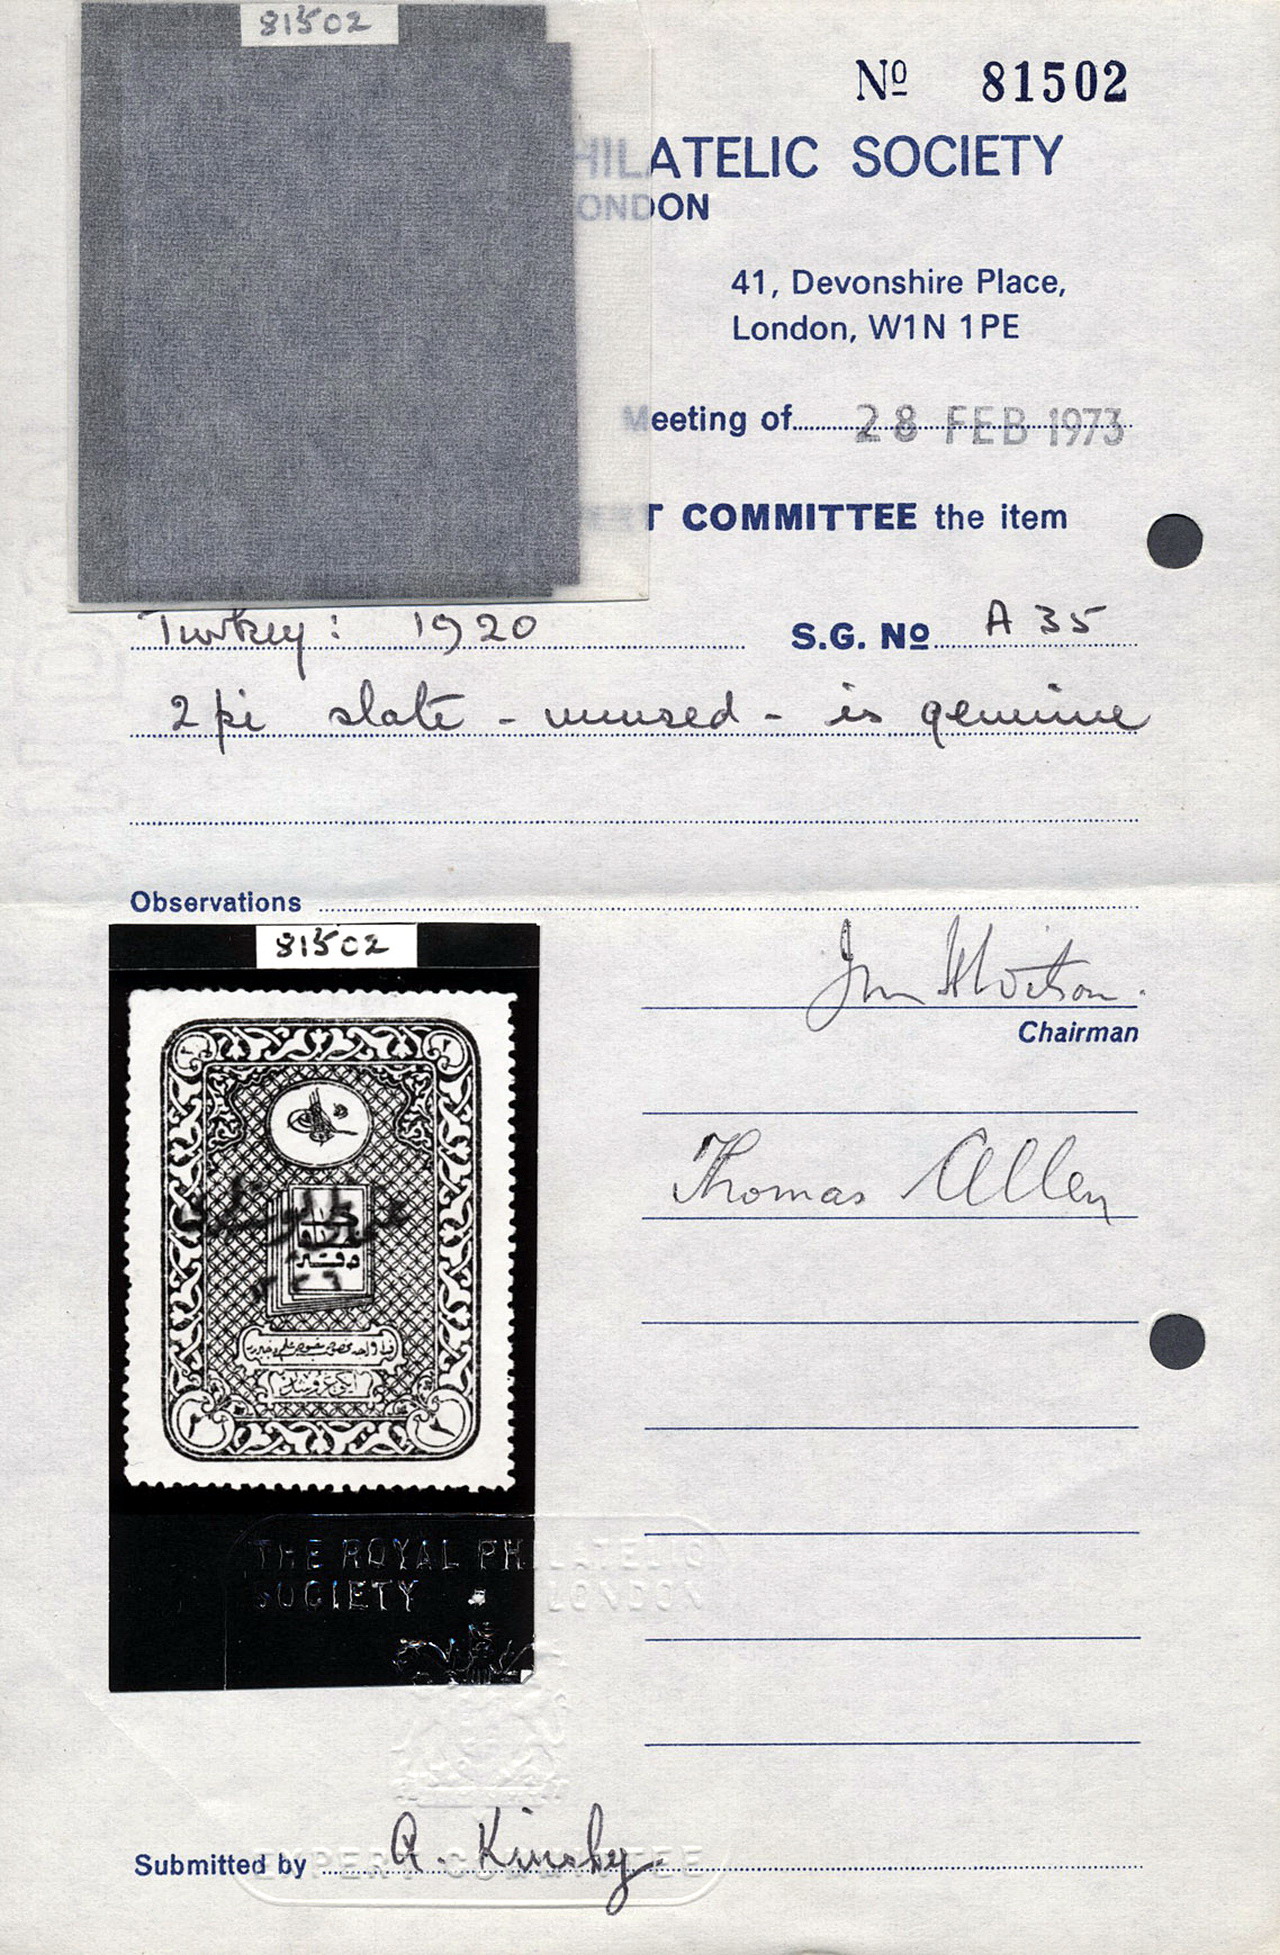 81502
Nº 81502
PHILATELIC SOCIETY
LONDON
41, Devonshire Place,
London, W1N 1PE
Meeting of 28 FEB 1973
T COMMITTEE the item
Turkey: 1920 S.G. Nº A 35
2 pi slate - unused - is genuine
Observations
81502
Chairman
Thomas Allen
THE ROYAL PHILATELIC
SOCIETY LONDON
Submitted by A.
EXPERT COMMITTEE